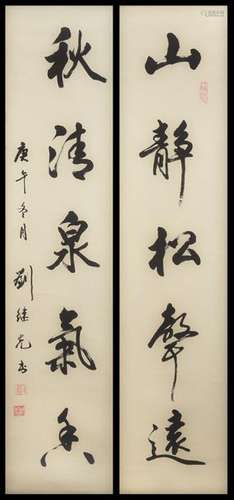 山靜松聲遠
秋清泉氣香
庚午冬月
劉繼光書